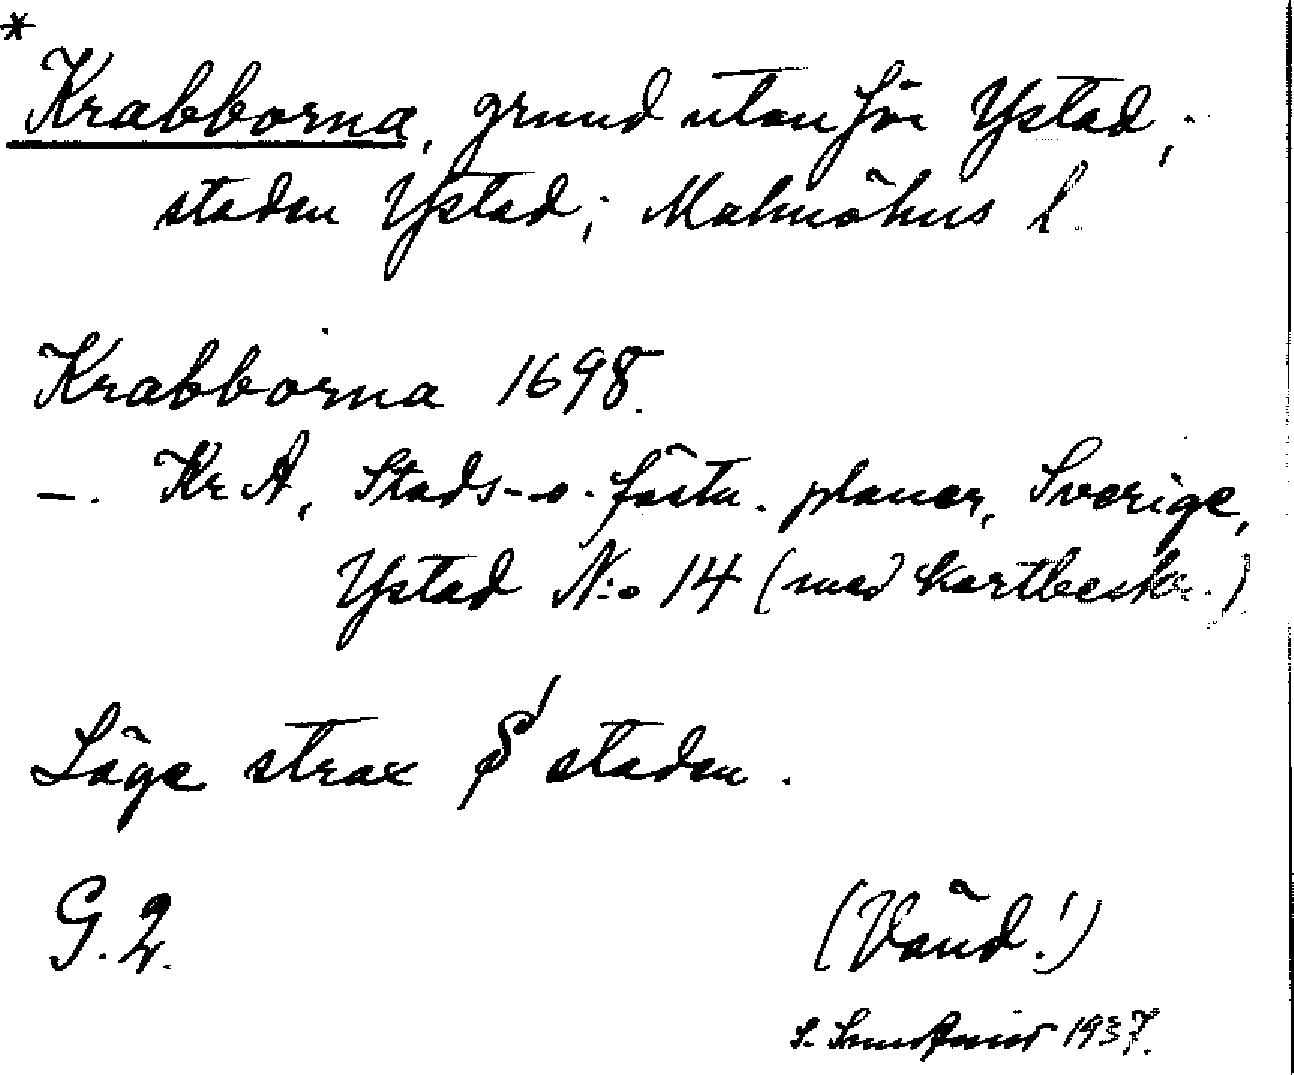 *
Krabborna, grund utanför Ystad;
staden Ystad; Malmöhus l.
Krabborna 1698.
–. KrA, Stads- o. fästn. planer, Sverige,
Ystad N:o 14 (med kartbeskr.)
Läge strax S staden.
G. 2.
(Vänd!)
S. 1937.